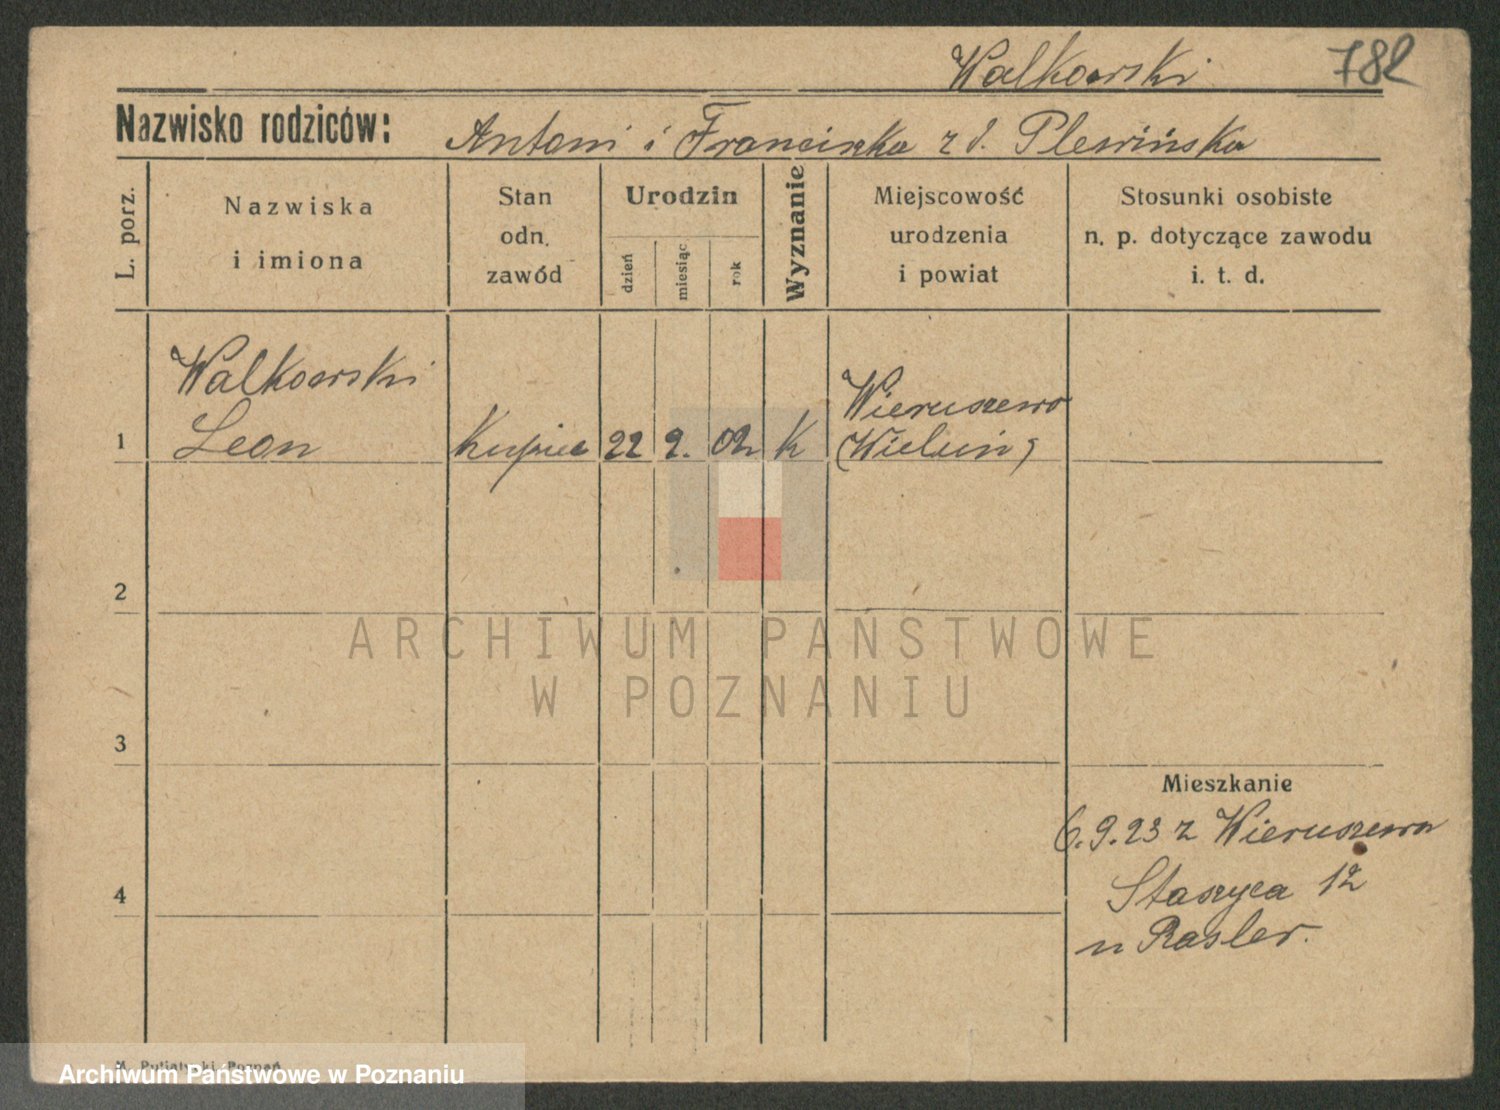 Walkowski 782
Nazwisko rodziców: Antoni i Franciszka z d. Plewińska
L. porz.
Nazwiska
i imiona
Stan
odn.
zawód
Urodzin
dzień
miesiąc
rok
Wyznanie
Miejscowość
urodzenia
i powiat
Stosunki osobiste
n. p. dotyczące zawodu
i. t. d.
Walkowski
1 Leon Kupiec 22 2. 02 K Wieruszewo
(Wieluń)
2
3
4
Mieszkanie
6.9.23 z Wieruszewa
Staszyca 12
u Rasler.
ARCHIWUM PAŃSTWOWE
W POZNANIU
Poznań
Archiwum Państwowe w Poznaniu